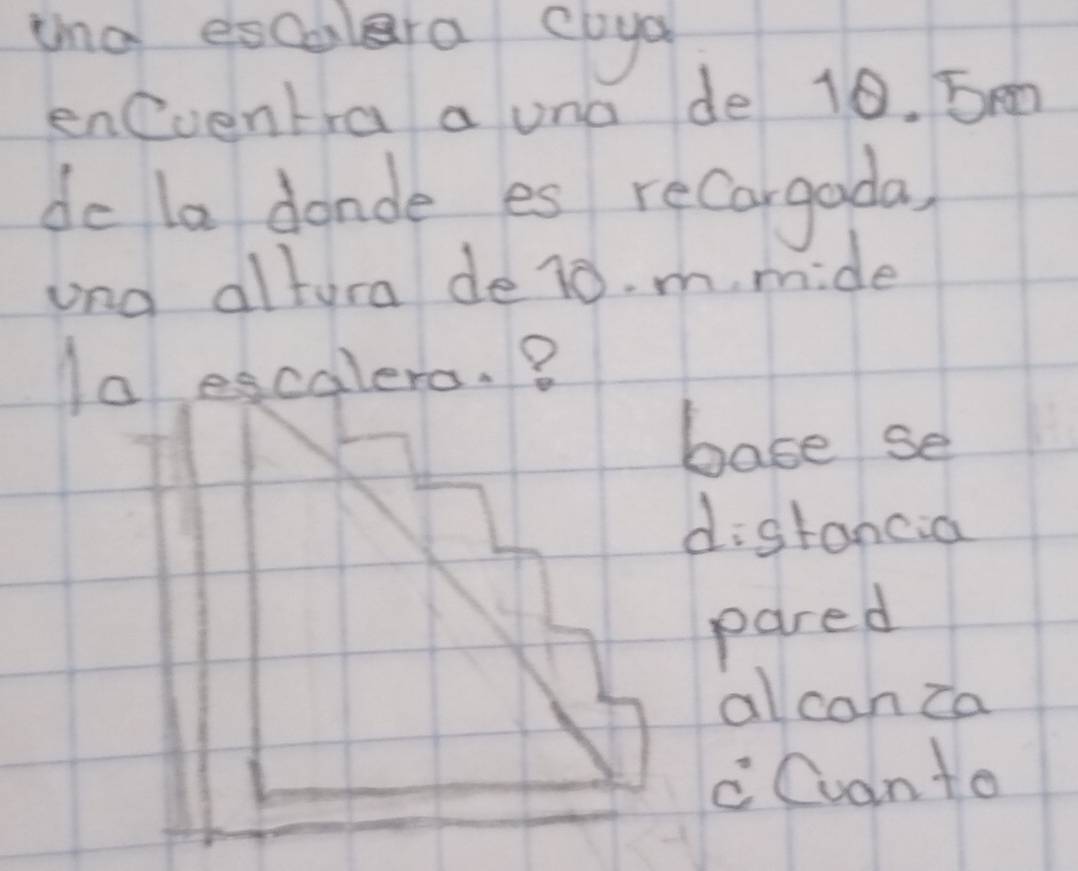 una escalera cuya
encuentra a una de 10.5m
de la donde es recargada,
una altura de 10.m.mide
la escalera.?
base se
distancia
pared
alcanza
¿Cuanto